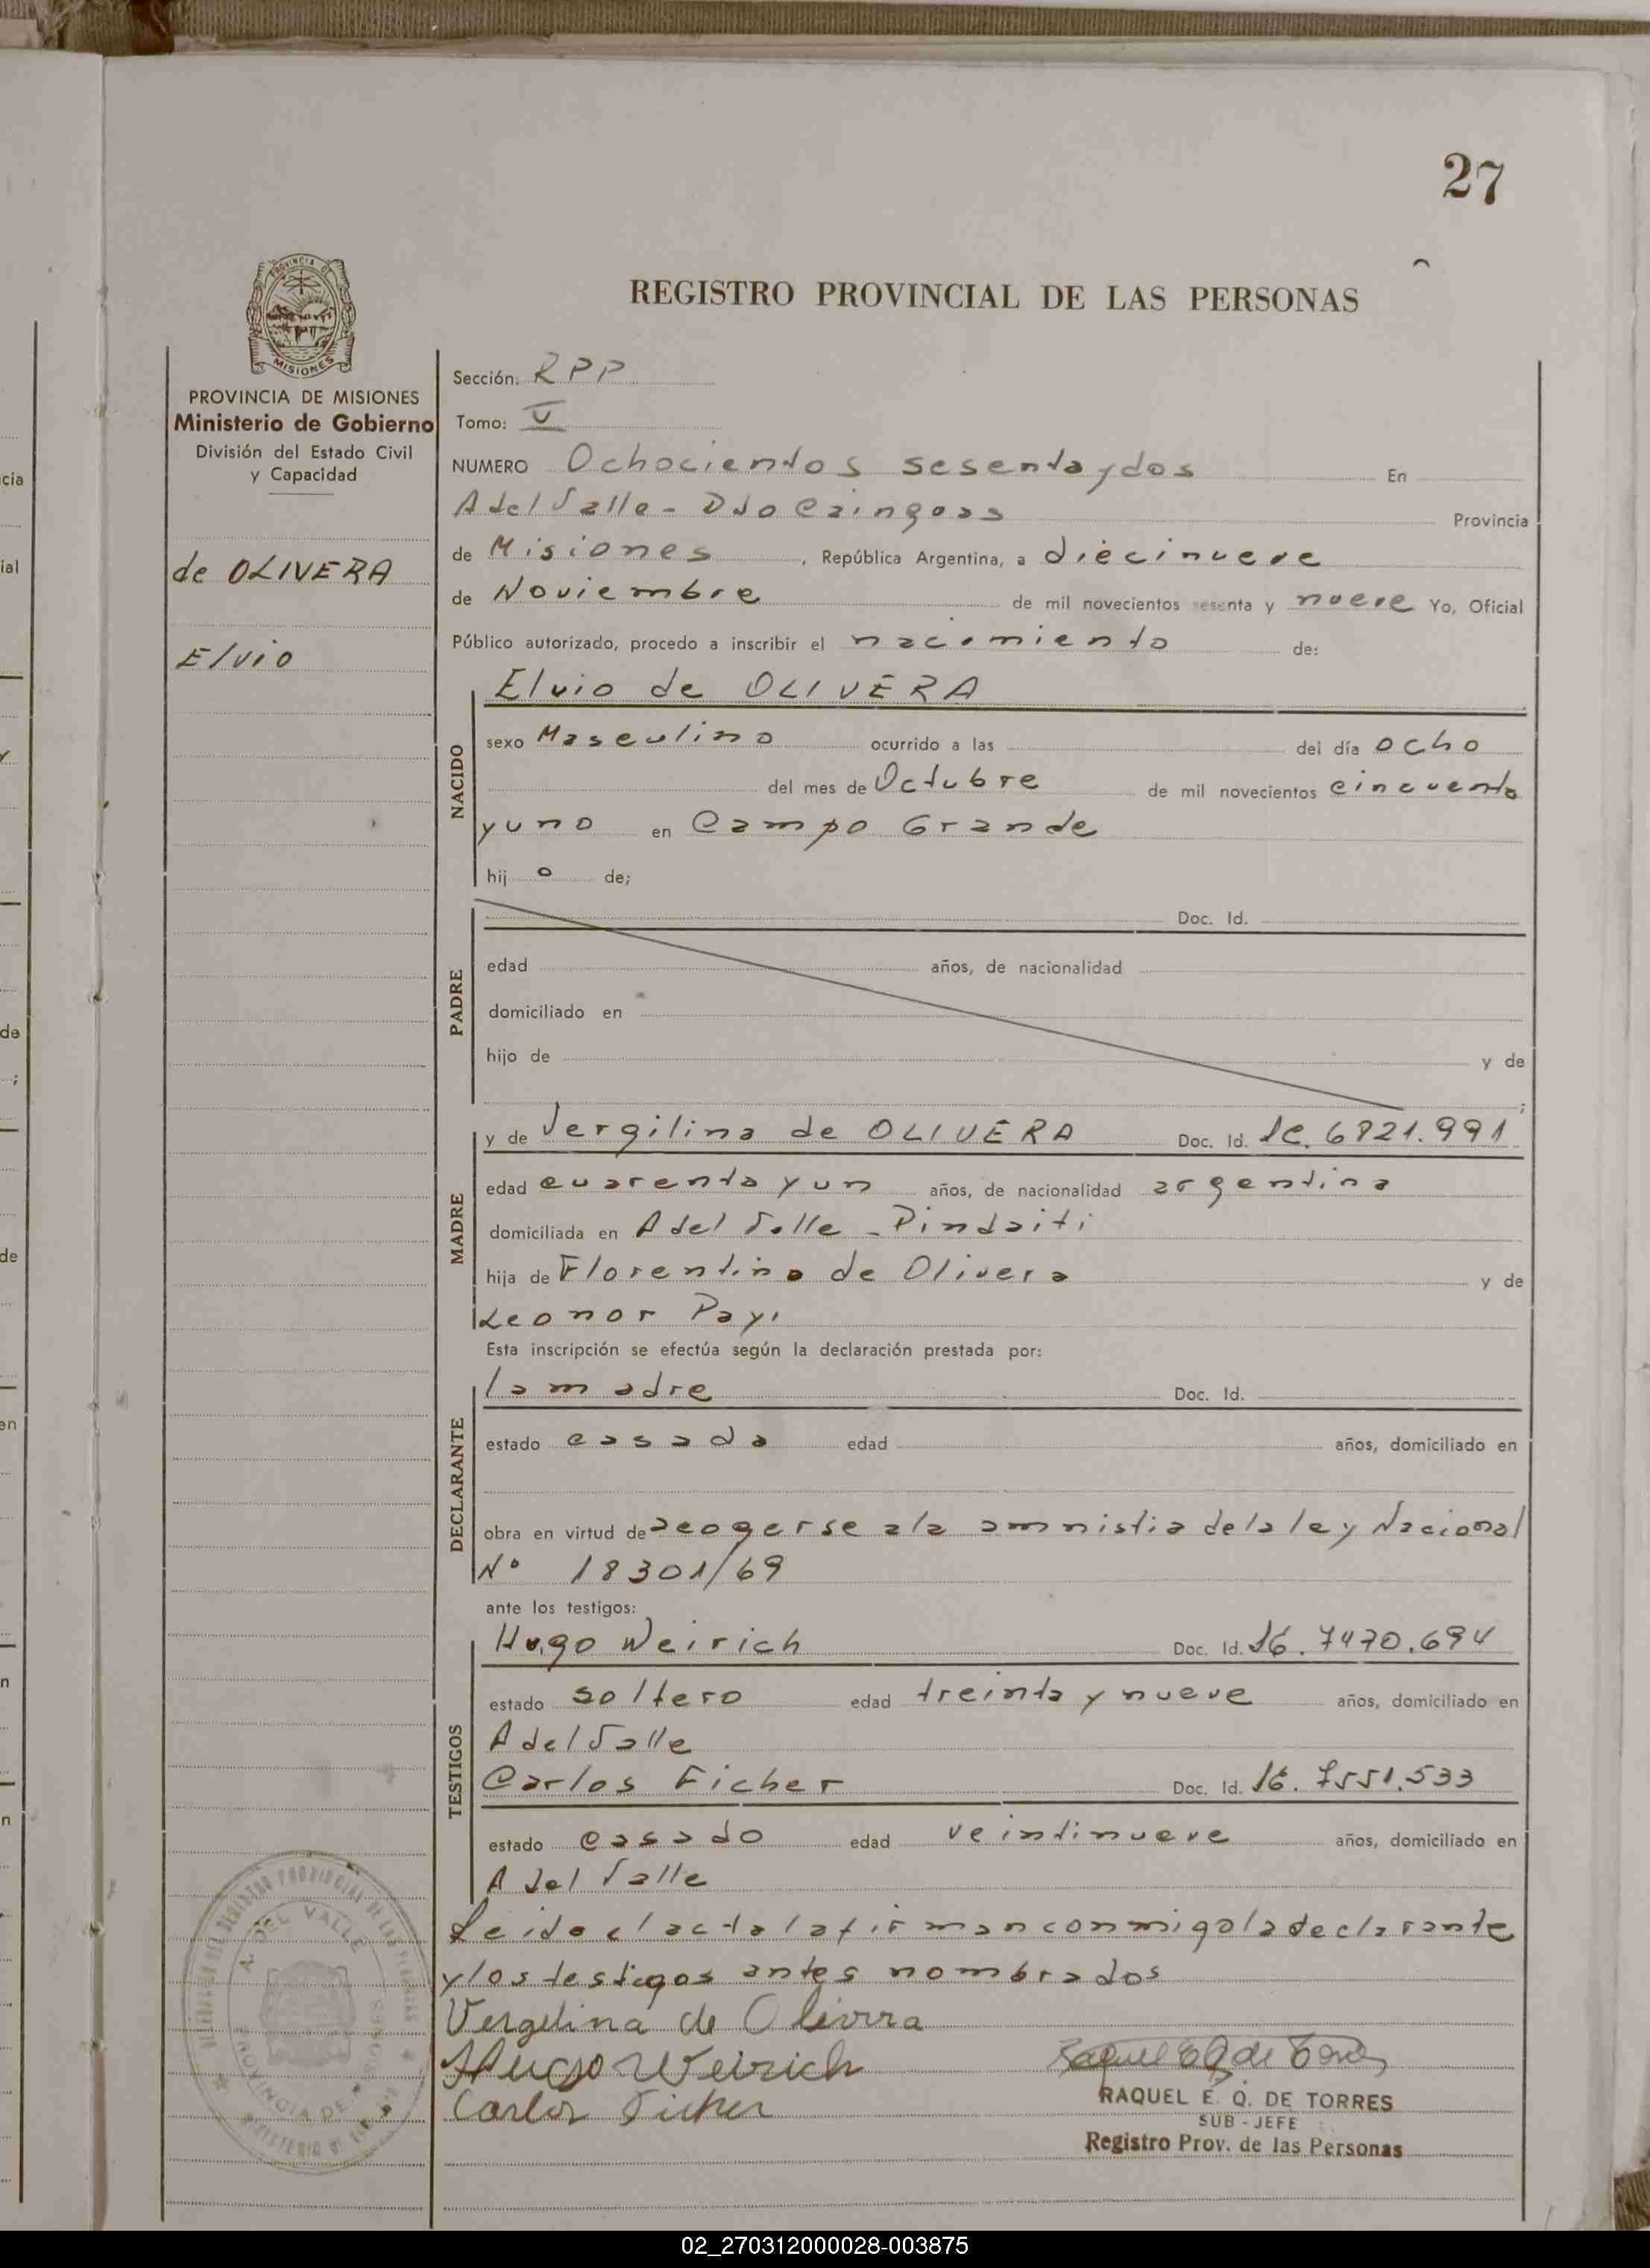 27
REGISTRO PROVINCIAL DE LAS PERSONAS
PROVINCIA DE
MISIONES
PROVINCIA DE MISIONES
Ministerio de Gobierno
División del Estado Civil
y Capacidad
de OLIVERA
Elvio
Sección: RPP
Tomo: V
NUMERO Ochocientos sesenta y dos En
A del Valle - Dto Cainguas Provincia
de Misiones, República Argentina, a diecinueve
de Noviembre de mil novecientos sesenta y nueve Yo, Oficial
Público autorizado, procedo a inscribir el nacimiento de:
NACIDO
Elvio de OLIVERA
sexo Masculino ocurrido a las del día ocho
del mes de Octubre de mil novecientos cincuenta
y uno en Campo Grande
hij o de;
PADRE
Doc. Id.
edad años, de nacionalidad
domiciliado en
hijo de y de
;
MADRE
y de Vergilina de OLIVERA Doc. Id. LC. 6821.991
edad cuarenta y un años, de nacionalidad argentina
domiciliada en A del Valle - Pindaiti
hija de Florentino de Olivera y de
Leonor Payi
Esta inscripción se efectúa según la declaración prestada por:
DECLARANTE
la madre Doc. Id.
estado casada edad años, domiciliado en
obra en virtud de acogerse a la amnistia de la ley Nacional
Nº 18301/69
ante los testigos:
TESTIGOS
Hugo Weirich Doc. Id. 7470.694
estado soltero edad treinta y nueve años, domiciliado en
A del Valle
Carlos Ficher Doc. Id. 7551.533
estado casado edad veintinueve años, domiciliado en
A del Valle
Leido el acta la firman conmigo la declarante
y los testigos antes nombrados
Vergilina de Olivera
Hugo Weirich
Carlos Ficher
RAQUEL E. Q. DE TORRES
SUB - JEFE
Registro Prov. de las Personas
A. DEL VALLE
PROVINCIA DE MISIONES
02_270312000028-003875